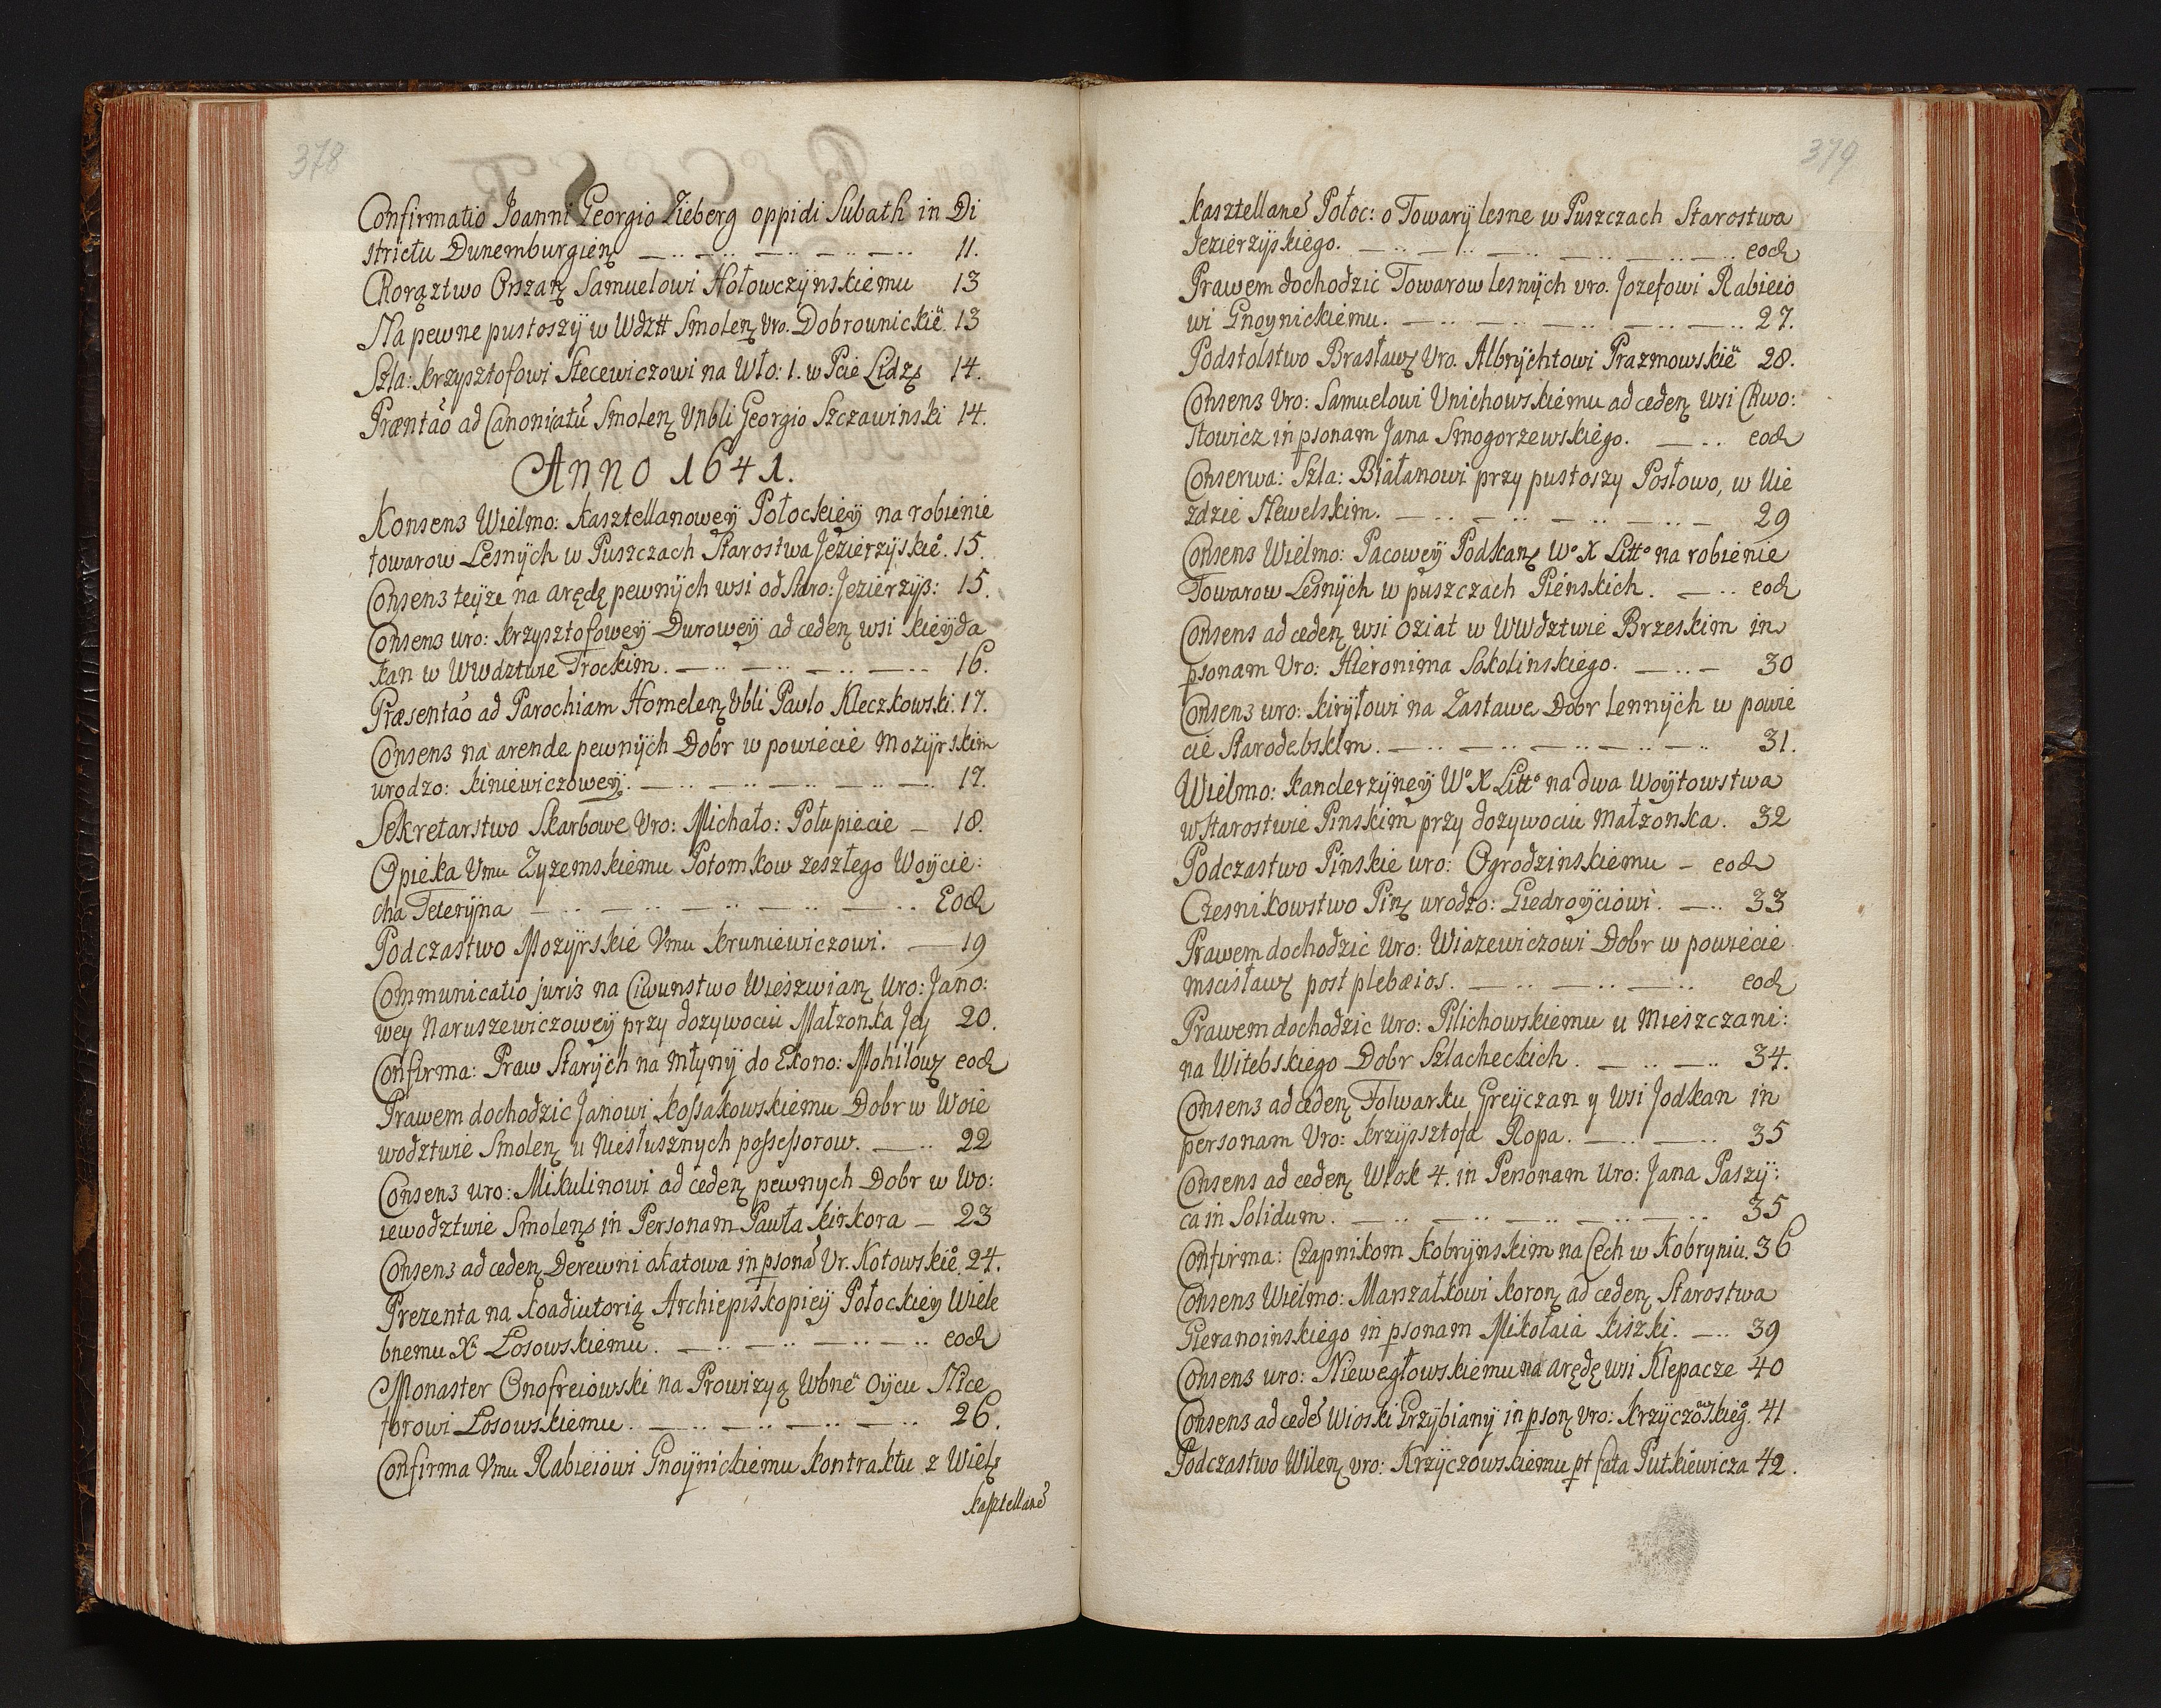 378
Confirmatio Joanni Georgio Zieberg oppidi Subath in Di
strictu Dunemburgien 11.
Chorąztwo Orszan Samuelowi Hołowczÿnskiemu 13
Na pewne pustoszÿ w Wdztt Smolen Vro. Dobrounickie 13
Szla: Krzysztofowi Stecewiczowi na Wło: 1. w Pcie Lidz 14.
Præntao ad Canonicatu Smolen Vnbli Georgio Szczawinski 14.
Anno 1641.
Konsens Wielmo: Kasztellanoweÿ Połockieÿ na robienie
towarow Lesnÿch w Puszczach Starostwa Jezierzÿskie. 15.
Consens teÿze na arędę pewnÿch wsi od Staro: Jezierzÿs: 15.
Consens uro: Krzysztofoweÿ Duroweÿ ad ceden wsi Kieÿda
kan w WWdztwie Trockim. 16.
Præsentao ad Parochiam Homelen Vbli Pavlo Kleczkowski. 17.
Consens na arende pewnÿch Dobr w powiecie Mozÿrskim
urodzo: Kiniewiczoweÿ. 17.
Sekretarstwo Skarbowe Vro: Michało: Połupiecie 18.
Opieka Vmu Zyzemskiemu Potomkow zeszłego Woÿcie:
cha Teterÿna Eod
Podczastwo Mozÿrskie Vmu Kruniewiczowi. 19
Communicatio juris na Ciwunstwo Wieszwian Uro: Jano:
wey Naruszewiczoweÿ przy dozywociu Małzonka Jey 20.
Confirma: Praw Starÿch na Młynÿ do Ekono: Mohilow eod
Prawem dochodzic Janowi Kossakowskiemu Dobr w Woie
wodztwie Smolen u Niesłusznych possessorow. 22
Consens uro: Mikulinowi ad ceden pewnych Dobr w Wo:
iewodztwie Smolen in Personam Pawła Kirkora 23
Consens ad ceden Derewni Akatowa in psona Vr. Kotowskie. 24.
Prezenta na Koadiutorią Archiepiskopieÿ Połockieÿ Wiele
bnemu X Łosowskiemu. eod
Monaster Onofreiowski na Prowizyą Wbne Oÿcu Nice
forowi Łosowskiemu. 26.
Confirma Vmu Rabieiowi Gnoÿnickiemu Kontraktu z Wiel
Kasztellane
379
Kasztellane Połoc: o Towarÿ lesne w Puszczach Starostwa
Jezierzÿskiego. eod
Prawem dochodzic Towarow lesnÿch vro. Jozefowi Rabieio
wi Gnoynickiemu. 27.
Podstolstwo Brasław Vro. Albrÿchtowi Prazmowskie 28.
Consens Vro: Samuelowi Vnichowskiemu ad ceden wsi Chwo:
stowicz in psonam Jana Smogorzewskiego. eod
Conserwa: Szla: Białanowi przy pustoszy Posłowo, w Uie
zdzie Newelskim. 29
Consens Wielmo: Pacoweÿ Podkan Wo X Litto na robienie
Towarow Lesnÿch w puszczach Pienskich. eod
Consens ad ceden wsi Oziat w WWdztwie Brzeskim in
psonam Vro: Hieronima Sokolinskiego. 30
Consens uro: Kirÿłowi na Zastawe Dobr lennÿch w powie
cie Starodebskim. 31.
Wielmo: Kanclerzÿneÿ Wo X Litto na dwa Woÿtowstwa
w Starostwie Pinskim przy dozywociu Małzonka. 32
Podczastwo Pinskie uro: Ogrodzinskiemu eod
Czesnikowstwo Pin urodzo: Giedroÿciowi. 33
Prawem dochodzic Uro: Wiazewiczowi Dobr w powiecie
Mscisław post plebæios. eod
Prawem dochodzic Uro: Pilichowskiemu u Mieszczani:
na Witebskiego Dobr Szlacheckich. 34.
Consens ad ceden Folwarku Greÿczan y Wsi Jodkan in
personam Vro: Krzÿsztofa Ropa. 35
Consens ad ceden Włok 4. in Personam Uro: Jana Paszÿ:
ca in Solidum. 35
Confirma: Czapnikom Kobrÿnskim na Cech w Kobryniu. 36
Consens Wielmo: Marszałkowi Koron ad ceden Starostwa
Gieranoinskiego in psonam Mikołaia Kiszki. 39
Consens uro: Niewegłowskiemu na arędę wsi Klepacze 40
Consens ad cede Wioski Grzÿbianÿ in pson Vro: Krzÿczoskieg. 41
Podczastwo Wilen vro: Krzÿczowskiemu pt fata Putkiewicza 42.